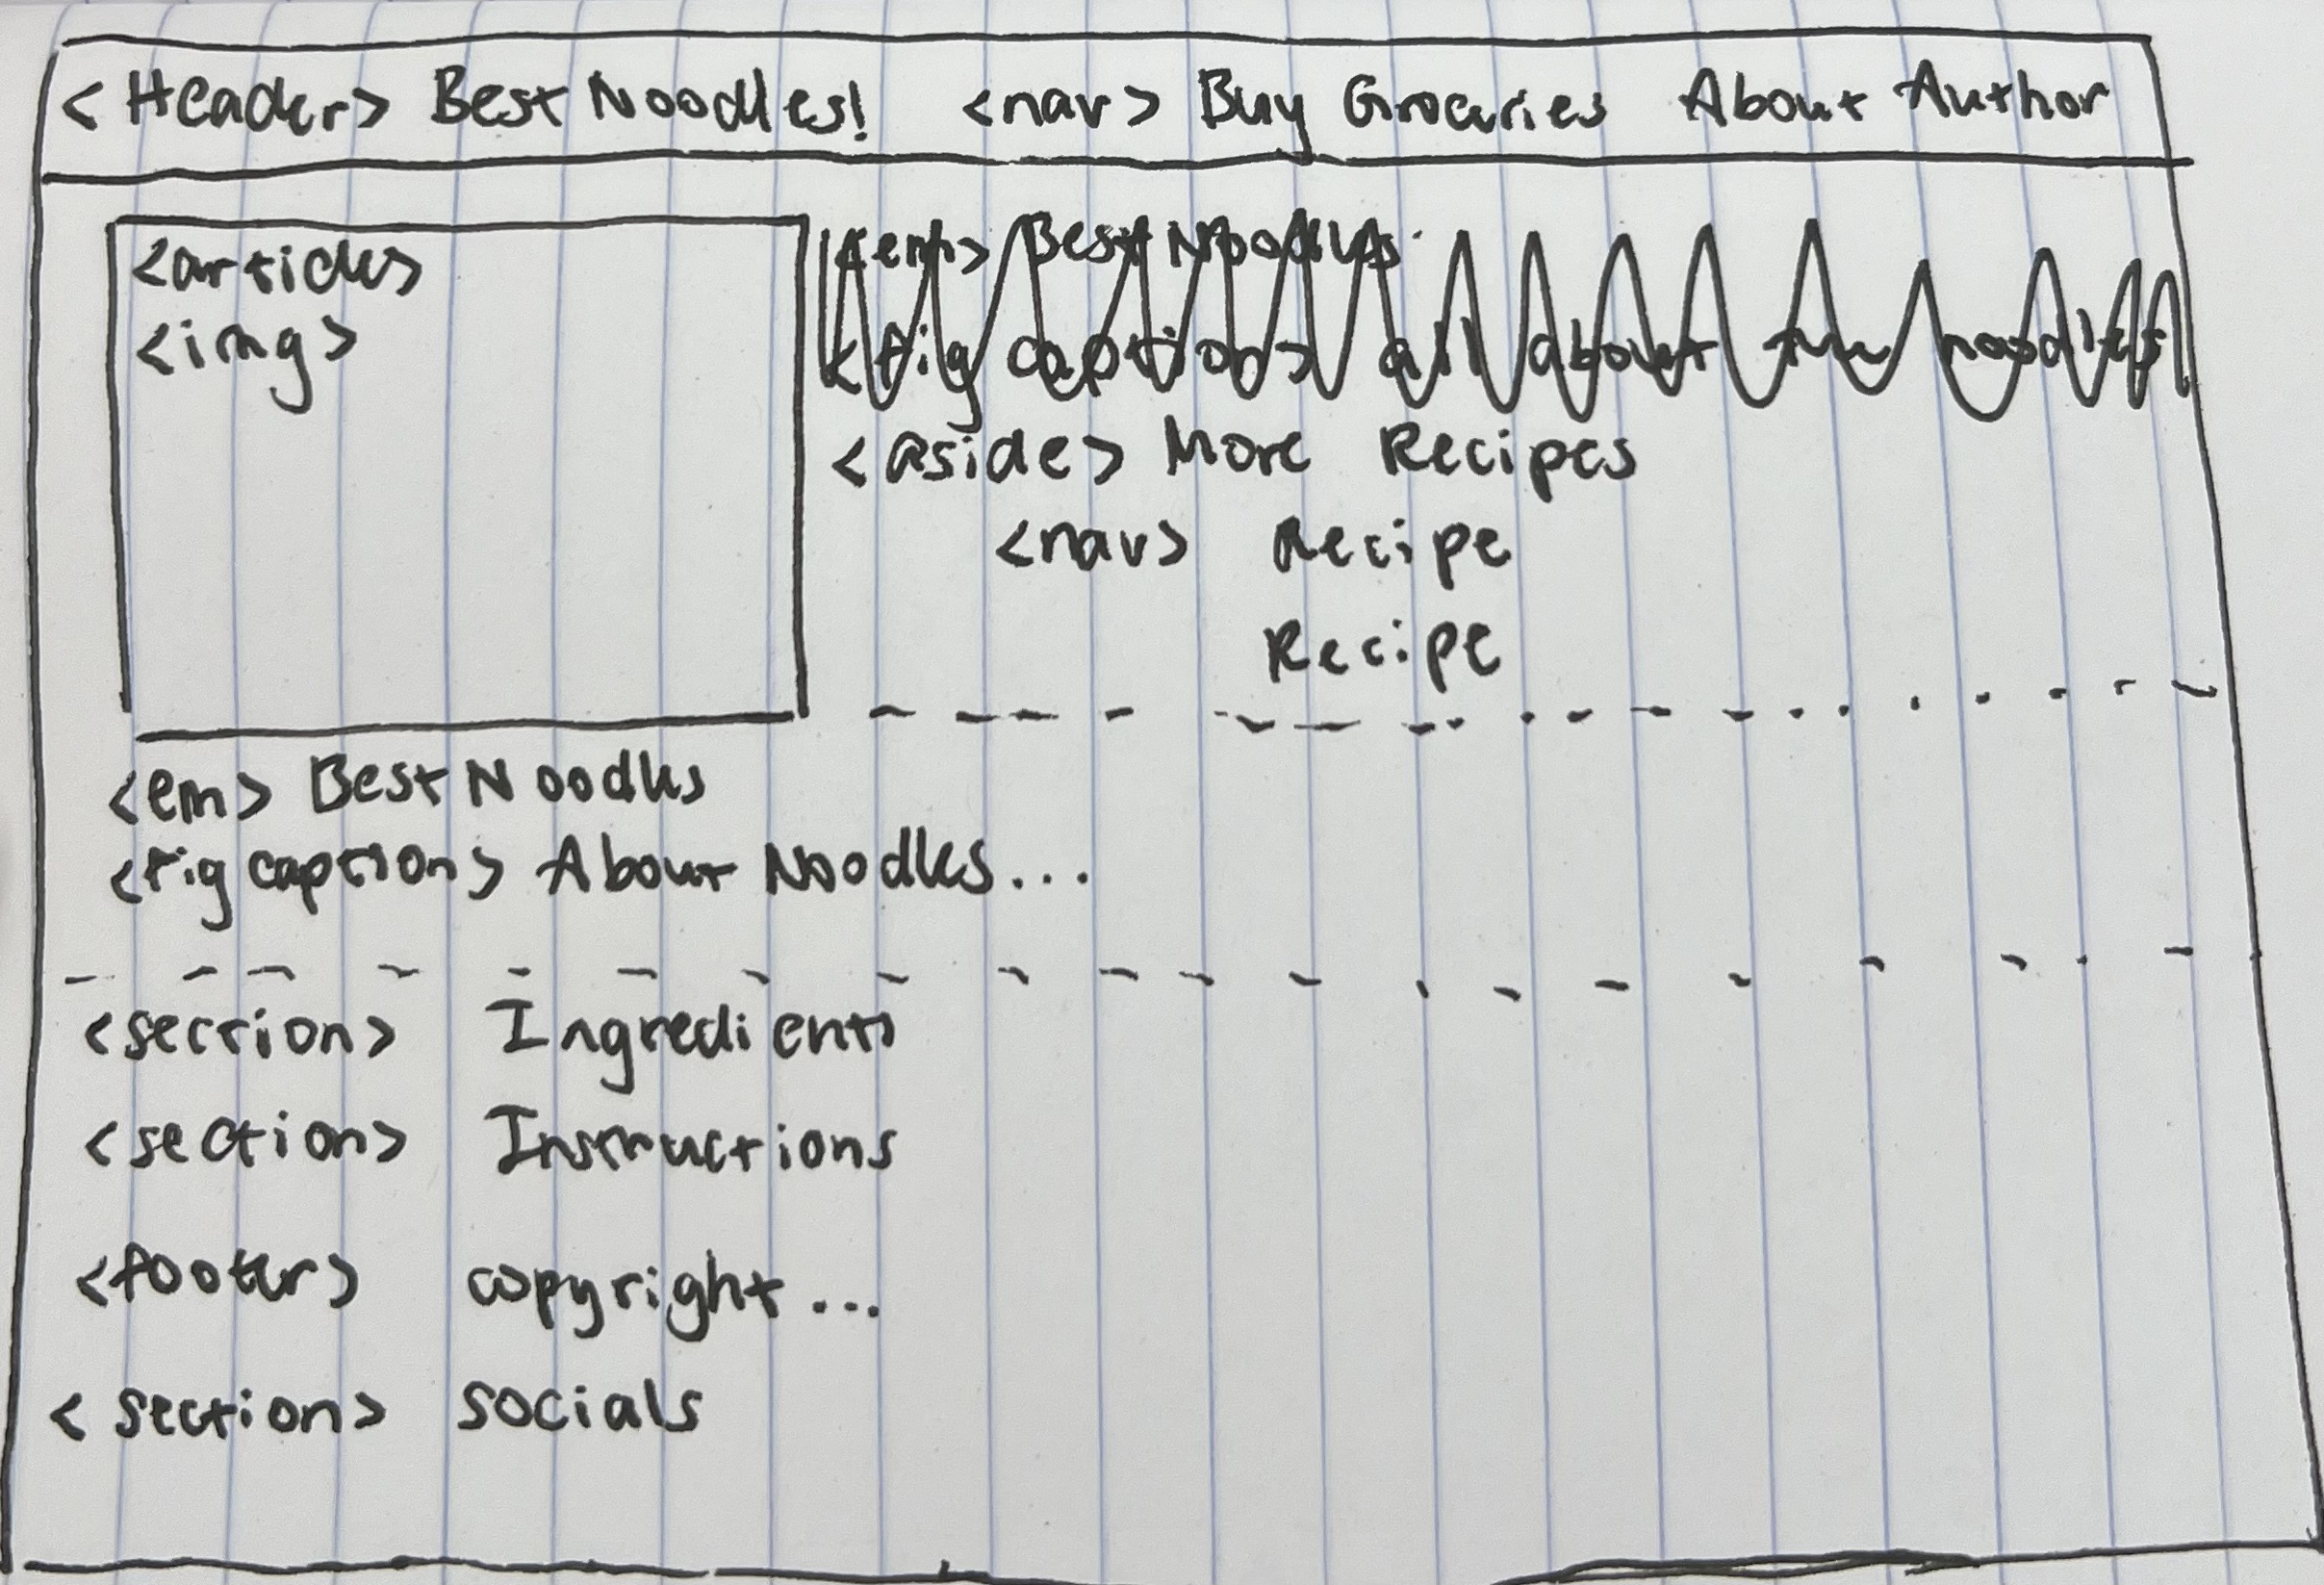 <Header> Best Noodles! <nav> Buy Groceries About Author
<article>
<img>
<em> Best Noodles
<figcaption> all about the noodles
<aside> More Recipes
<nav> Recipe
Recipe
<em> Best Noodles
<figcaption> About Noodles...
<section> Ingredients
<section> Instructions
<footer> copyright...
<section> socials